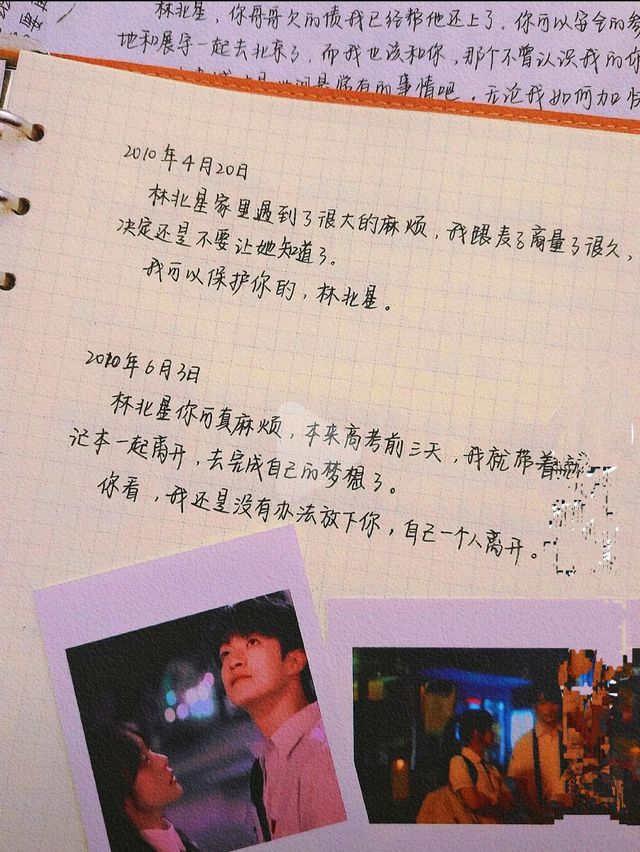 林北星，你哥哥欠的债我已经帮他还上了。你可以安全的参
地和展宇一起去北京了，而我也该和你，那个不曾认识我的你
有的事情吧。无论我如何加
2010年4月20日
林北星家里遇到了很大的麻烦，我跟麦子商量了很久，
决定还是不要让她知道了。
我可以保护你的，林北星。
2010年6月3日
林北星你可真麻烦，本来高考前三天，我就带着
记本一起离开，去完成自己的梦想了。
你看，我还是没有办法放下你，自己一个人离开。